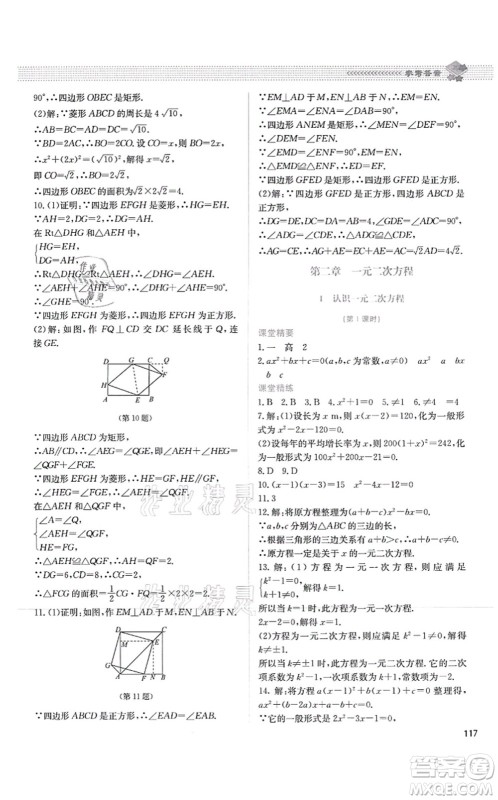 参考答案
90°,∴四边形OBEC是矩形.
(2)解:∵菱形ABCD的周长是4√10,
∴AB=BC=AD=DC=√10.
∵BD=2AC,∴设CO=x,则BO=2x,
∴x²+(2x)²=(√10)²,解得x=√2,
即CO=√2,BO=2√2,
∴四边形OBEC的面积为√2×2√2=4.
10.(1)证明:∵四边形EFGH是菱形,∴HG=EH.
∵AH=2,DG=2,∴DG=AH.
在Rt△DHG和△AEH中,
HG=EH,
DG=AH,
∴Rt△DHG≌△AEH,∴∠DHG=∠AEH.
∵∠AEH+∠AHE=90°,∴∠DHG+∠AHE=90°,
∴∠GHE=90°.
∵四边形EFGH为菱形,∴四边形EFGH是正方形.
(2)解:如图,过F作FQ⊥DC交DC延长线于Q,连接GE.
D G C Q
H F
A E B
(第10题)
∵四边形ABCD为矩形,
∴AB∥CD,∴∠AEG=∠QGE,即∠AEH+∠HEG=∠QGF+∠FGE.
∵四边形EFGH为菱形,∴HE=GF,HE∥GF,
∴∠HEG=∠FGE,∴∠AEH=∠QGF.
在△AEH和△QGF中,
∠A=∠Q,
∠AEH=∠QGF,
HE=FG,
∴△AEH≌△QGF,∴AH=QF=2.
∵DG=6,CD=8,∴CG=2,
∴△FCG的面积=1/2 CG·FQ=1/2×2×2=2.
11.(1)证明:如图,作EM⊥AD于M,EN⊥AB于N.
A F N
(第11题)
∵四边形ABCD是正方形,∴∠EAD=∠EAB.
∵EM⊥AD于M,EN⊥AB于N,∴EM=EN.
∵∠EMA=∠ENA=∠DAB=90°,
∴四边形ANEM是矩形,
∴∠MEN=∠DEF=90°,
∴∠DEM=∠FEN.
∵∠EMD=∠ENF=90°,EM=EN,
∴△EMD≌△ENF,∴ED=EF.
∵四边形GFED是矩形,∴四边形GFED是正方形.
(2)∵四边形GFED是正方形,四边形ABCD是正方形,
∴DG=DE,DC=DA=AB=2,∠GDE=∠ADC=90°,
∴∠ADG=∠CDE,
∴△ADG≌△CDE,∴AG=CE,
∴AE+AG=AE+CE=AC=√2AD=√2×√2=2.
第二章 一元二次方程
1 认识一元二次方程
(第1课时)
课堂精要
1.一 高 2
2.ax²+bx+c=0(a,b,c为常数,a≠0) ax² a bx b c
课堂精练
1.B 2.B 3.B 4.≠1 5.≠4 6.-1
7.解:(1)设长为x m,则x(x-2)=120,化为一般形式为x²-2x-120=0.
(2)设每年的平均增长率为x,则200(1+x)²=242,化为一般形式为100x²+200x-21=0.
8.D 9.D
10.(x-1)(x-3)=15 x²-4x-12=0
11.3
12.解:将原方程整理为(a-c)x²+bx-b=0.
∵a,b,c是△ABC的三边的长,
∴根据三角形的三边关系,得a-c≠0,
∴原方程一定是一元二次方程.
13.解:(1)方程为一元一次方程,则应满足
k²-1=0,
k+1≠0,
解得k=1.
所以当k=1时,方程为一元一次方程,该方程为2x-2=0.
(2)方程为一元二次方程,则应满足k²-1≠0,解得k≠±1.
所以当k≠±1时,方程为一元二次方程.它的二次项系数为k²-1,一次项系数为k+1,常数项为-2.
14.解:一元二次方程ax²-bx-c=0整理得,ax²-bx-c=0.
∵它的一般形式为2x²-3x-1=0,
117